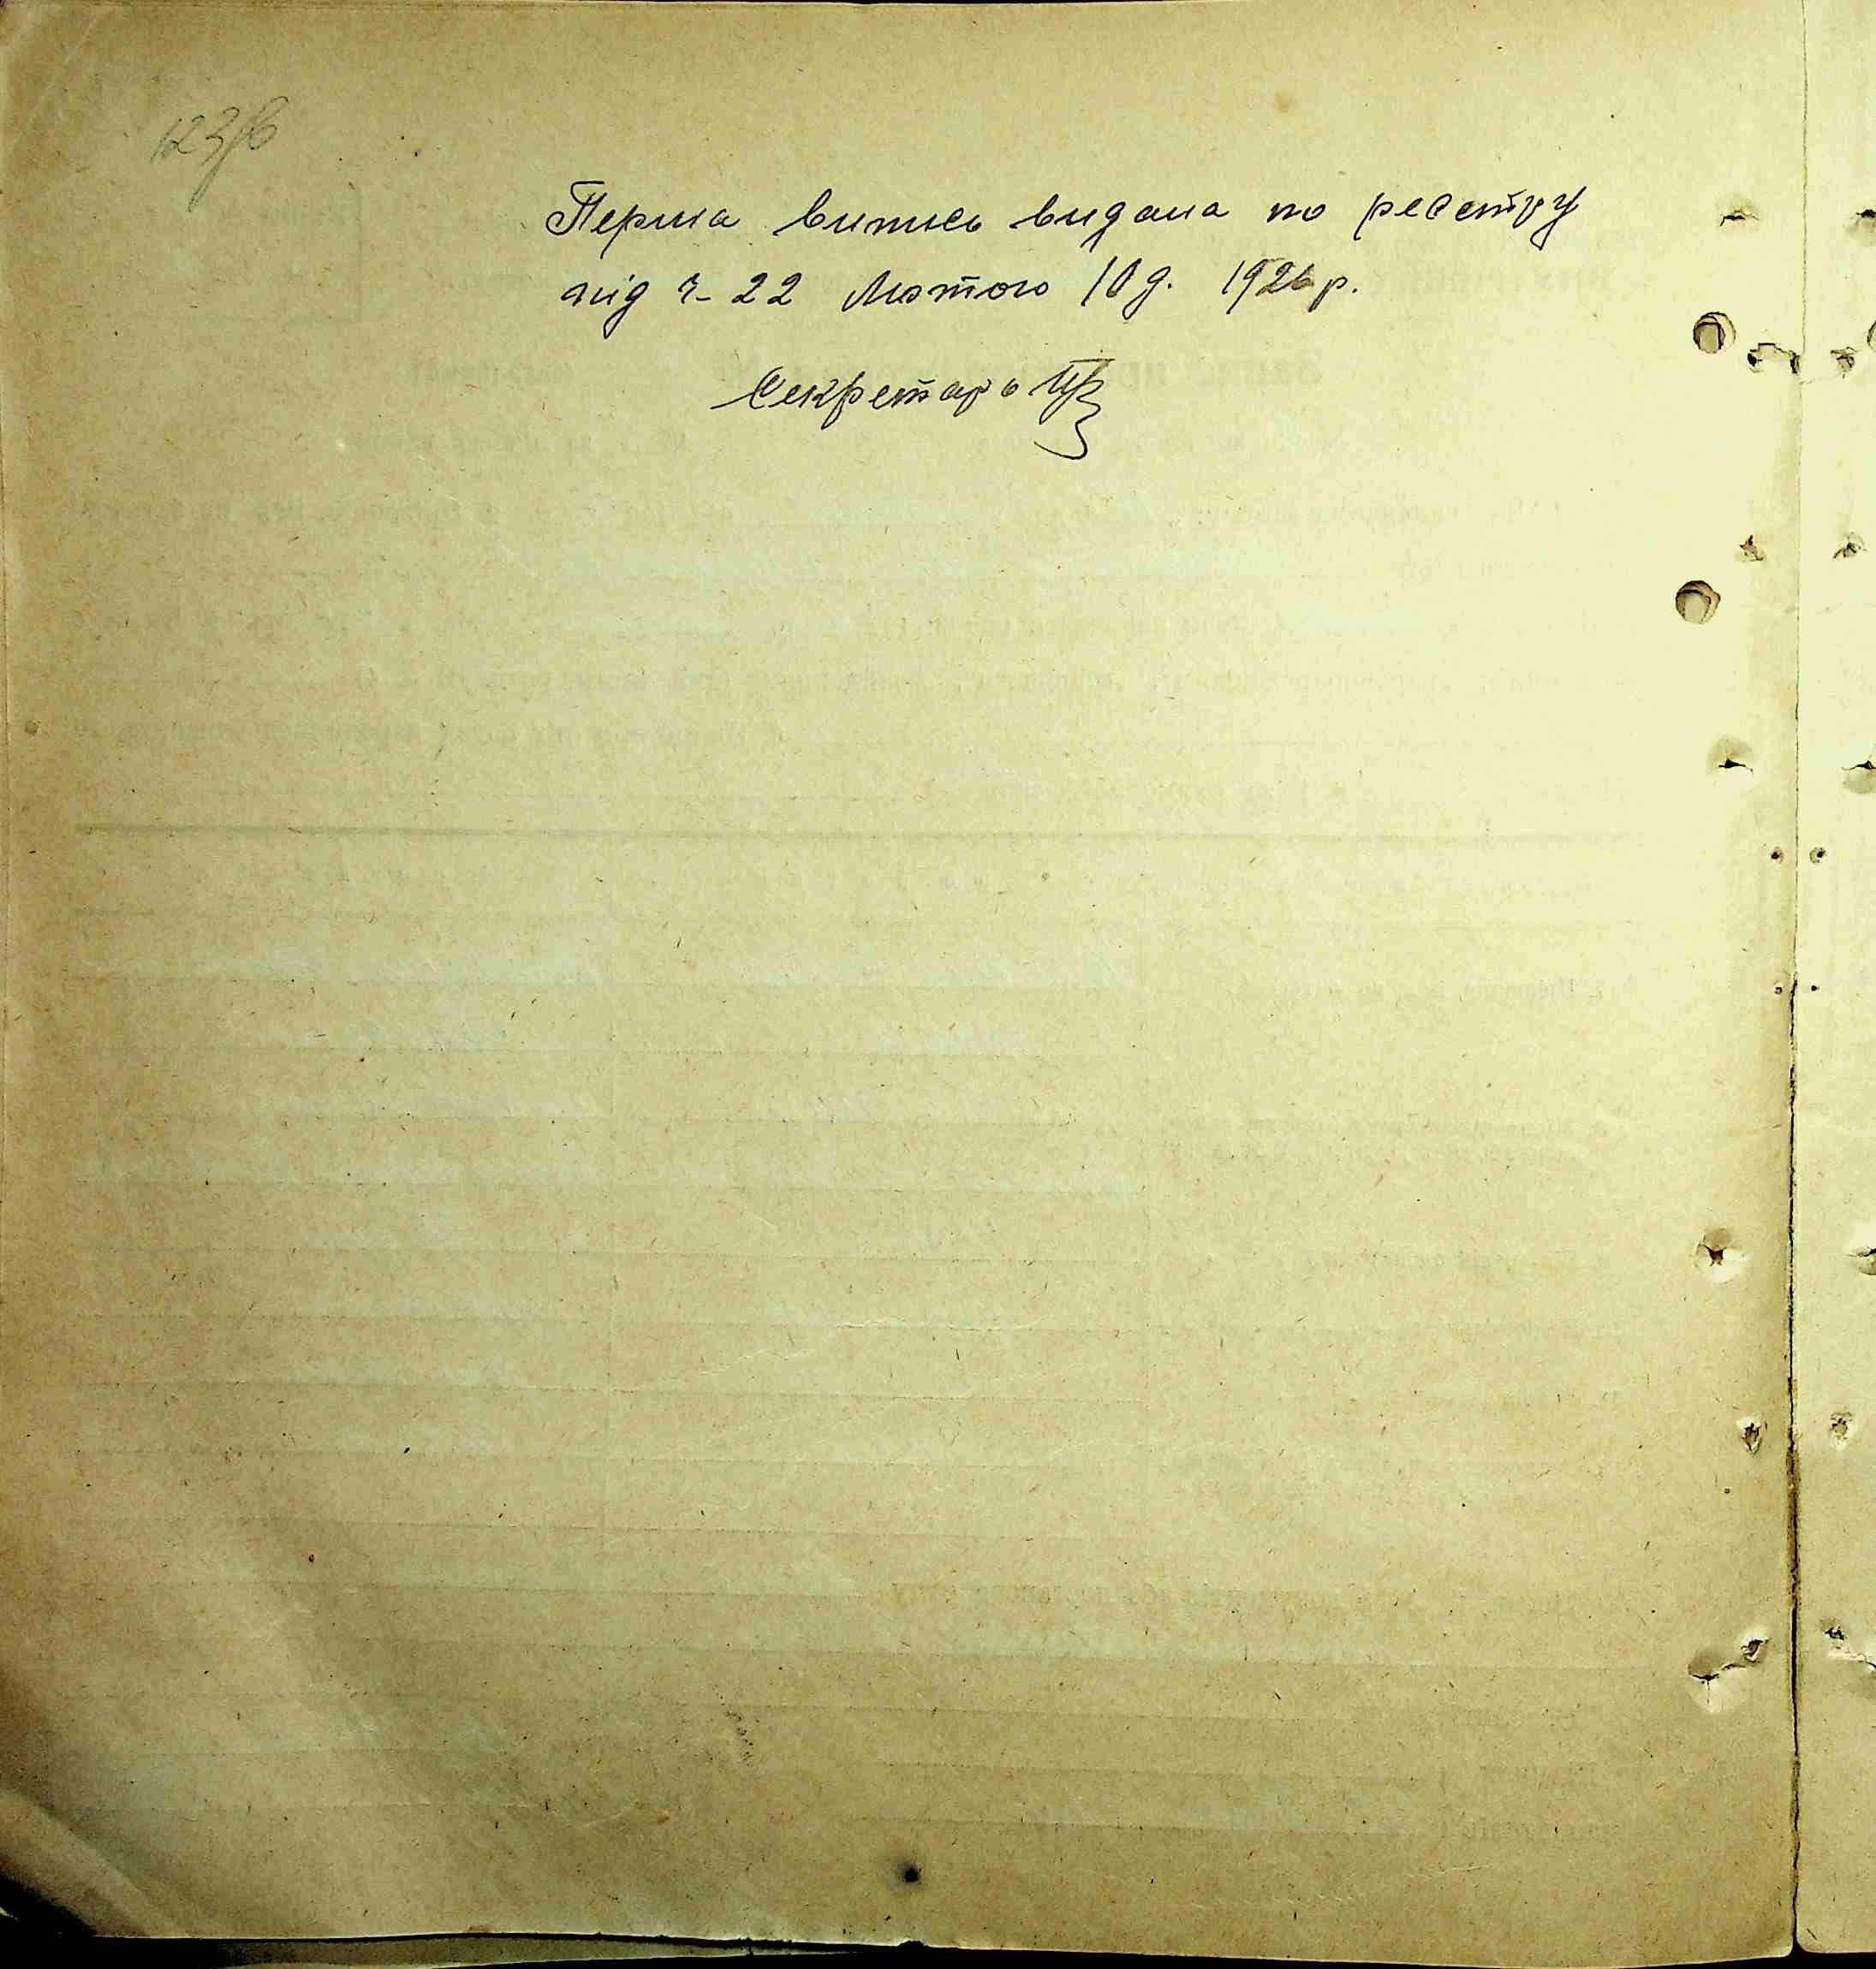 123/в
Перша випись видана по реестру
під ч- 22 Лютого 10 д. 1926 р.
Секретарь